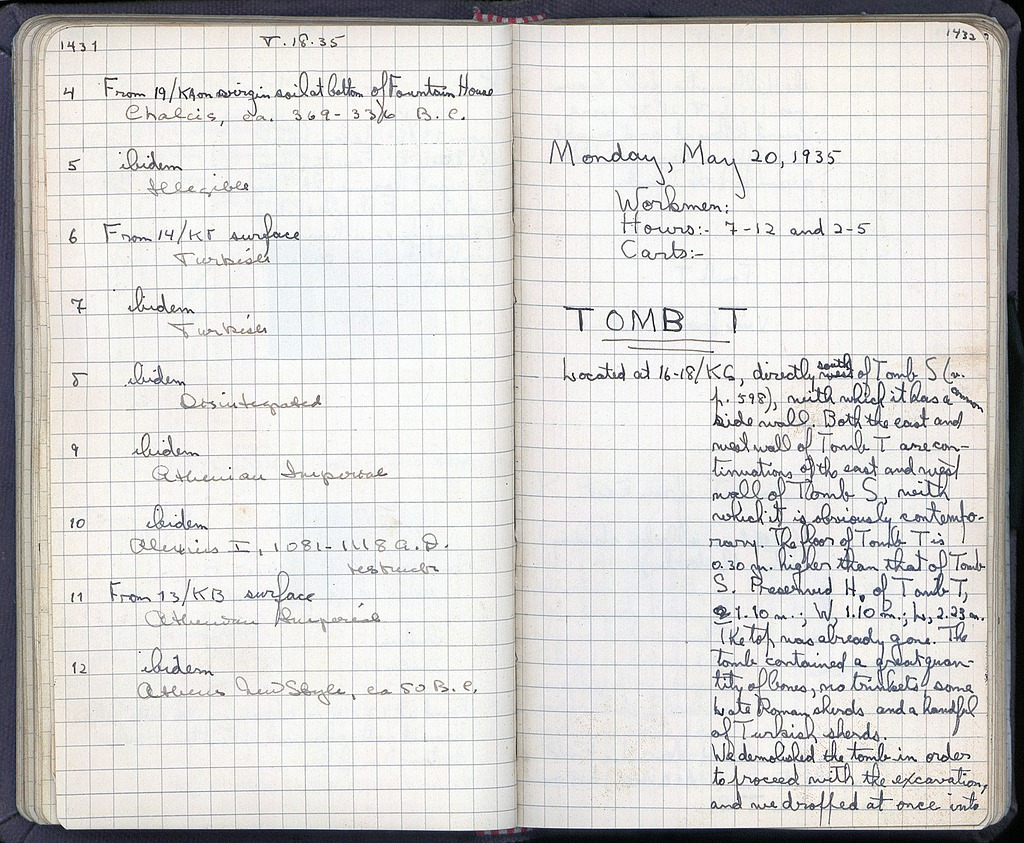 1431
V.18.35
4 From 19/KA on virgin soil at bottom of Fountain House
Chalcis, ca. 369-336 B.C.
5 ibidem
Illegible
6 From 14/KΓ surface
Turkish
7 ibidem
Turkish
8 ibidem
Disintegrated
9 ibidem
Athenian Imperial
10 ibidem
Alexius I, 1081-1118 A.D.
restruck
11 From 13/KB surface
Athenian Imperial
12 ibidem
Athens New Style, ca 50 B.C.
1432
Monday, May 20, 1935
Workmen:
Hours:- 7-12 and 2-5
Carts:-
TOMB T
Located at 16-18/KG, directly south of Tomb S (v.
p. 598), with which it has a common
side wall. Both the east and
west wall of Tomb T are con-
tinuations of the east and west
wall of Tomb S, with
which it is obviously contempo-
rary. The floor of Tomb T is
0.30 m. higher than that of Tomb
S. Preserved H. of Tomb T,
1.10 m.; W, 1.10 m.; L, 2.23 m.
The top was already gone. The
tomb contained a great quan-
tity of bones, no trinkets some
Late Roman sherds and a handful
of Turkish sherds.
We demolished the tomb in order
to proceed with the excavation,
and we dropped at once into